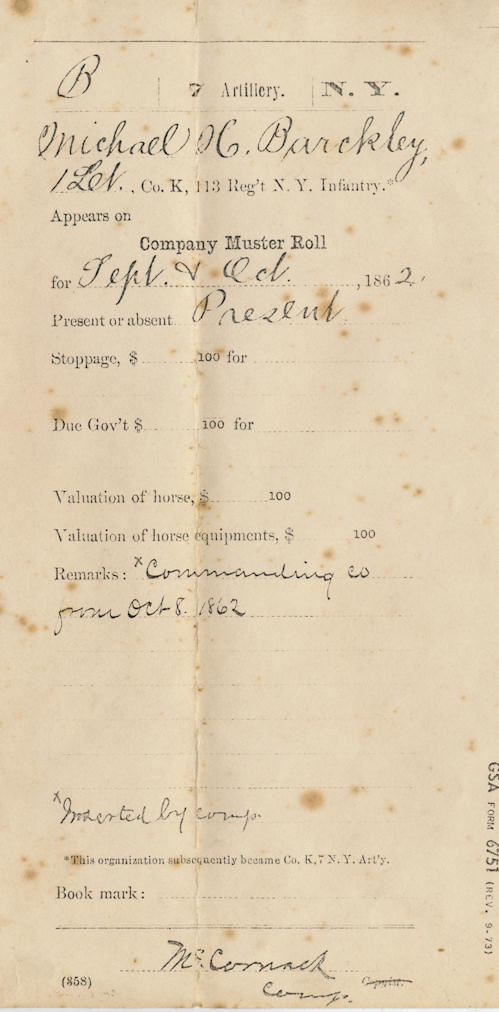 B | 7 Artillery. | N. Y.
Michael H. Barckley,
1 Lt., Co. K, 113 Reg't N. Y. Infantry.*
Appears on
Company Muster Roll
for Sept. & Oct. , 1862.
Present or absent Present
Stoppage, $ 100 for
Due Gov't $ 100 for
Valuation of horse, $ 100
Valuation of horse equipments, $ 100
Remarks: x Commanding co
from Oct 8. 1862
x Inserted by comp.
*This organization subsequently became Co. K, 7 N. Y. Art'y.
Book mark:
McCormack
(358) comp. Copyist.
GSA FORM 6751 (REV. 9-73)